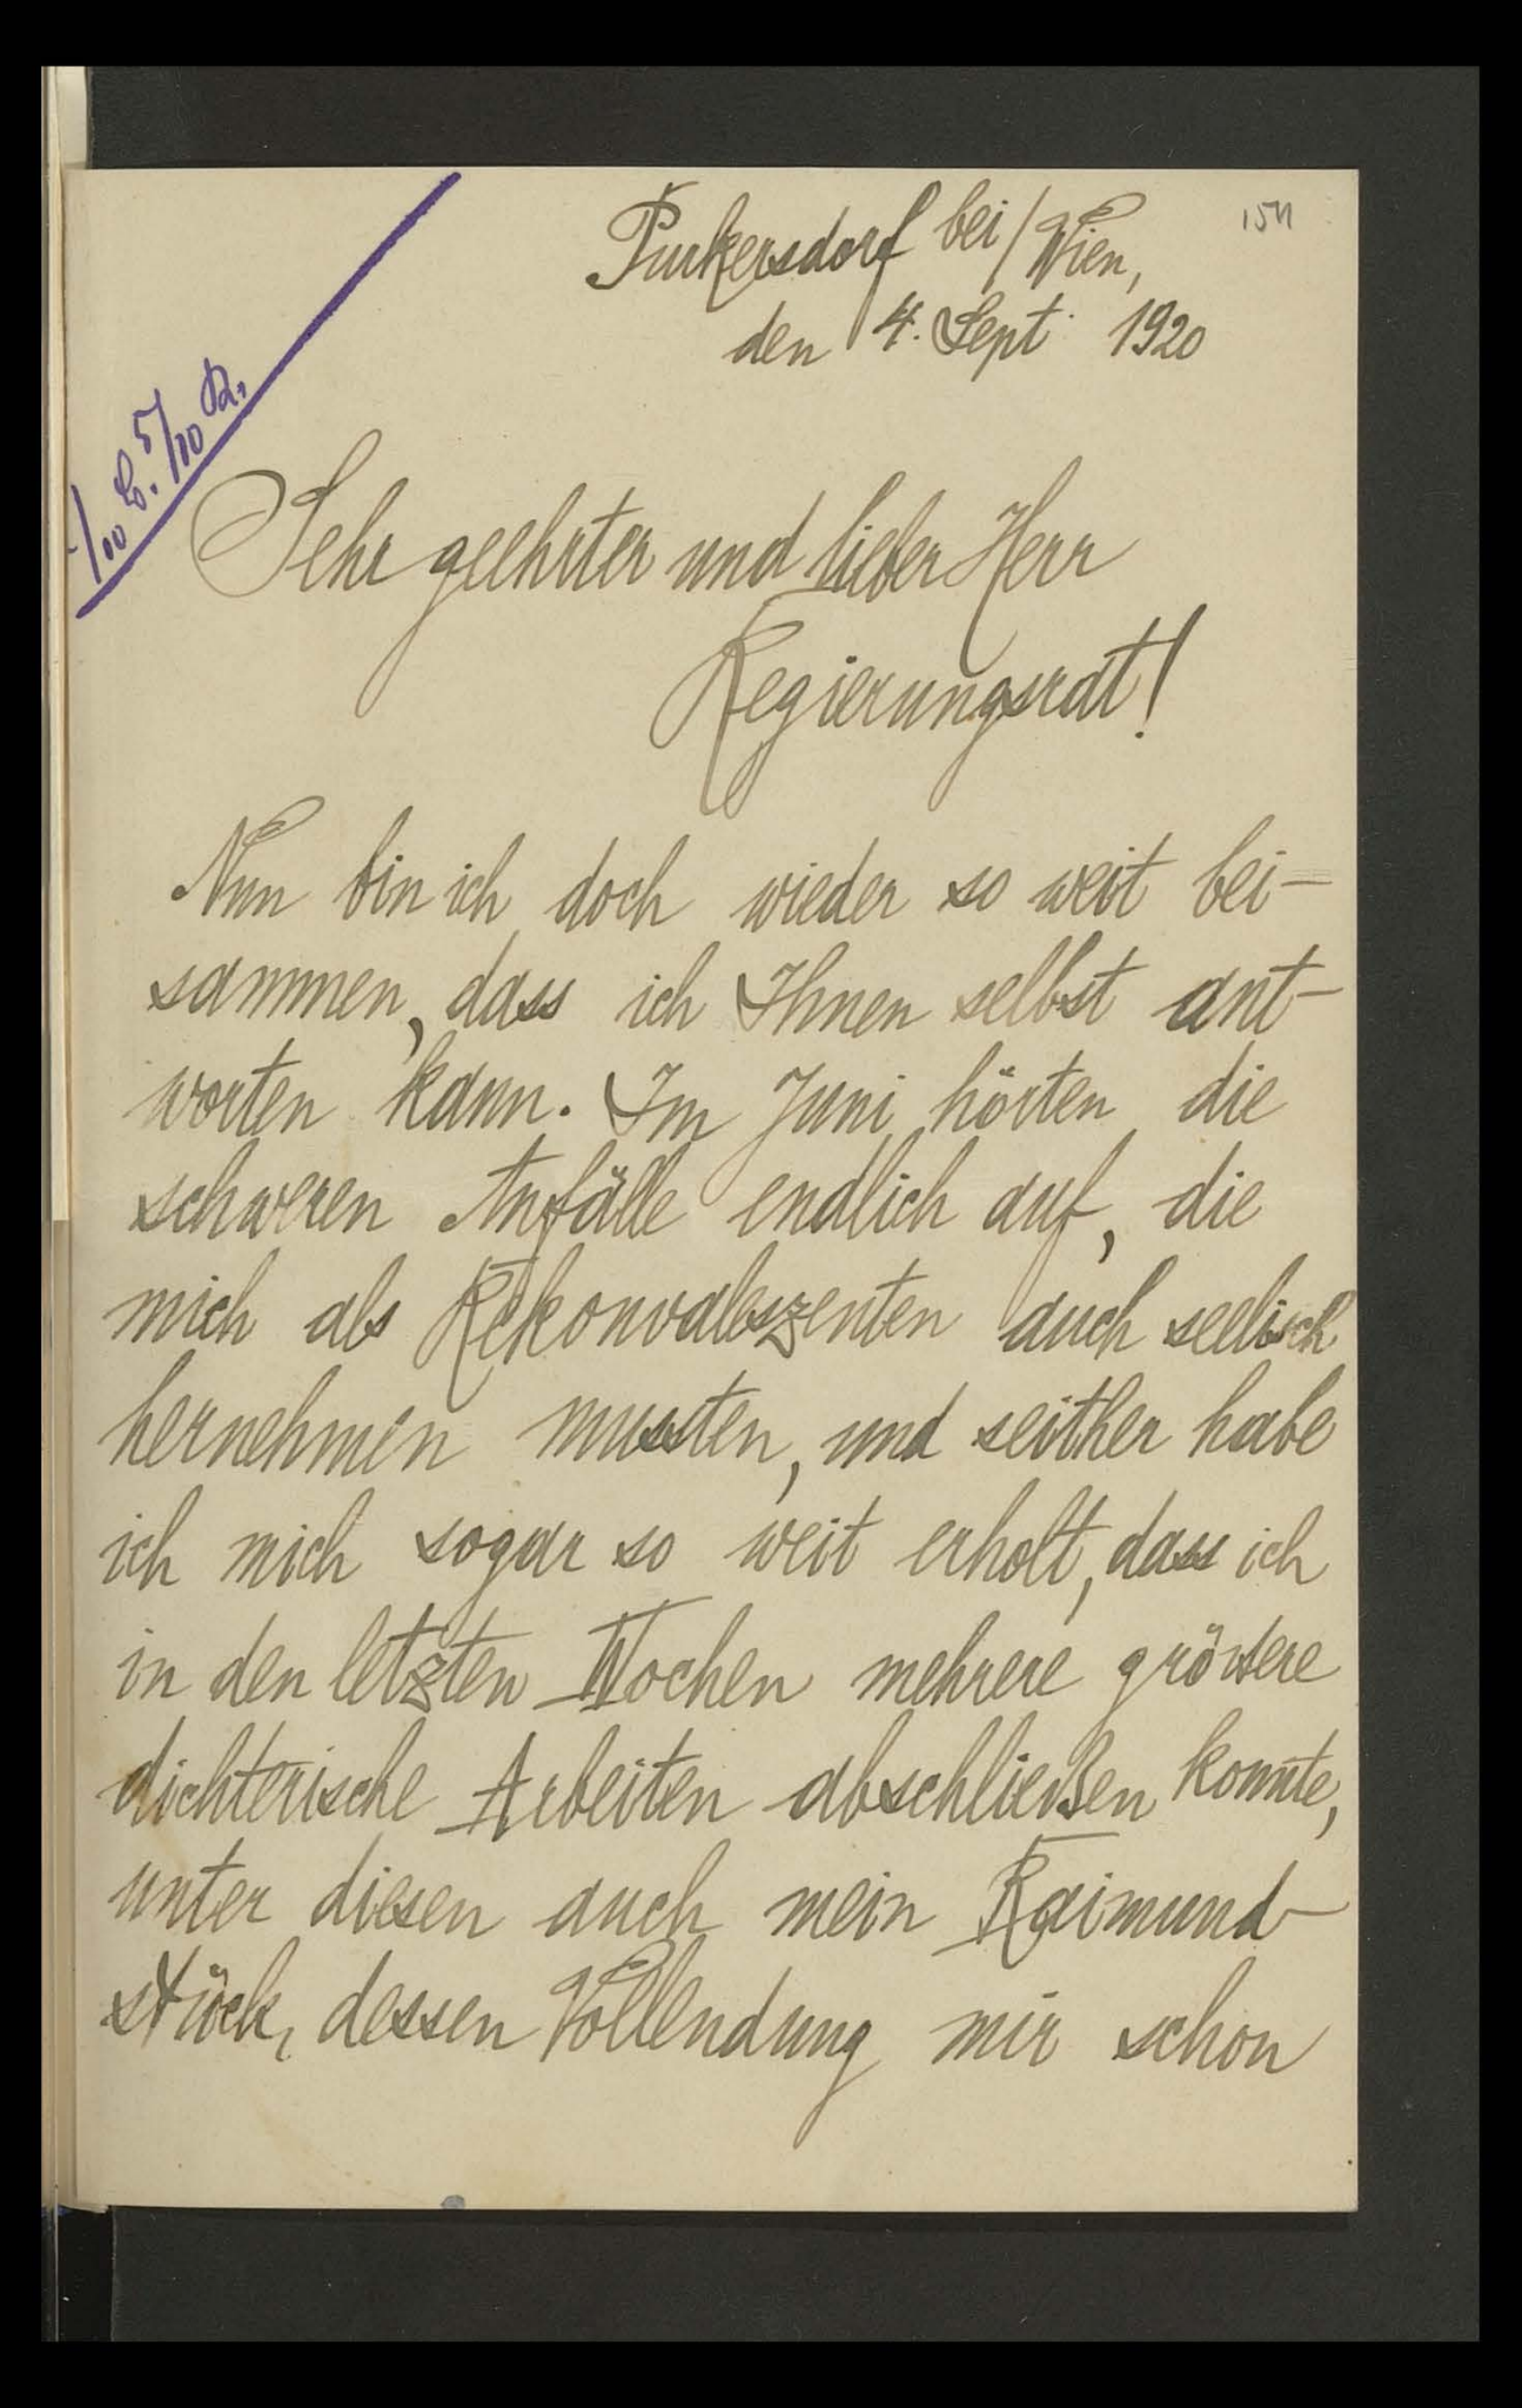 154
Purkersdorf bei/Wien,
den 4. Sept. 1920
5/10
Sehr geehrter und lieber Herr
Regierungsrat!
Nun bin ich doch wieder so weit bei-
sammen, dass ich Ihnen selbst ant-
worten kann. Im Juni hörten die
schweren Anfälle endlich auf, die
mich als Rekonvaleszenten auch seelisch
hernehmen mussten, und seither habe
ich mich sogar so weit erholt, dass ich
in den letzten Wochen mehrere grössere
dichterische Arbeiten abschließen konnte,
unter diesen auch mein Raimund-
stück, dessen Vollendung mir schon